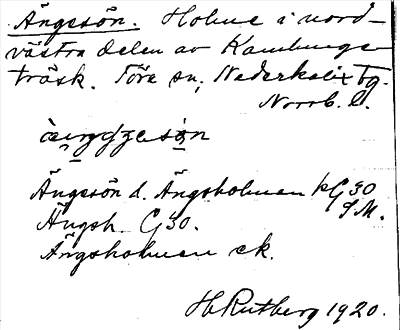 Ängesön. Holme i nord-
västra delen av Kamlunge-
träsk. Töre sn, Nederkalix tg.
Norrb. l.
Ängesön d. Ängsholmen kG 30
SM.
Ängsh. G 30.
Ängsholmen ek.
H Rutberg 1920.